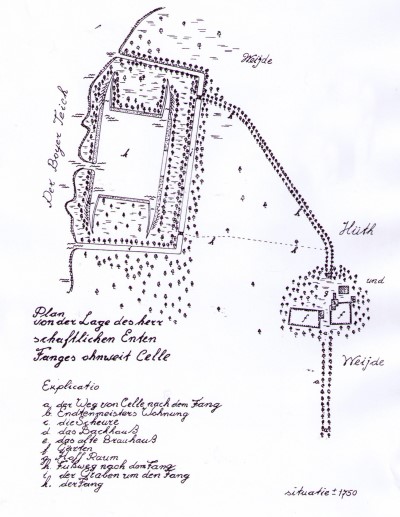 Weijde
Der Boyer Teich
Hüth
und
Weijde
Plan
von der Lage des herr
schaftlichen Enten
Fanges ohnweit Celle
Explicatio
a. der Weg von Celle nach dem Fang
b. Endtenmeisters Wohnung
c. die Scheure
d. das Backhauß
e. das alte Brauhauß
f. Gärten
g. Hoff Raum
h. Fußweg nach dem Fang
i. der Graben um den Fang
k. der Fang
situatie ± 1750